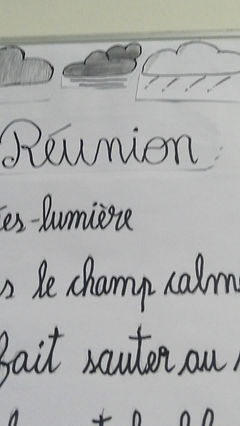 Réunion
es-lumière
s le champ calm
fait sauter au